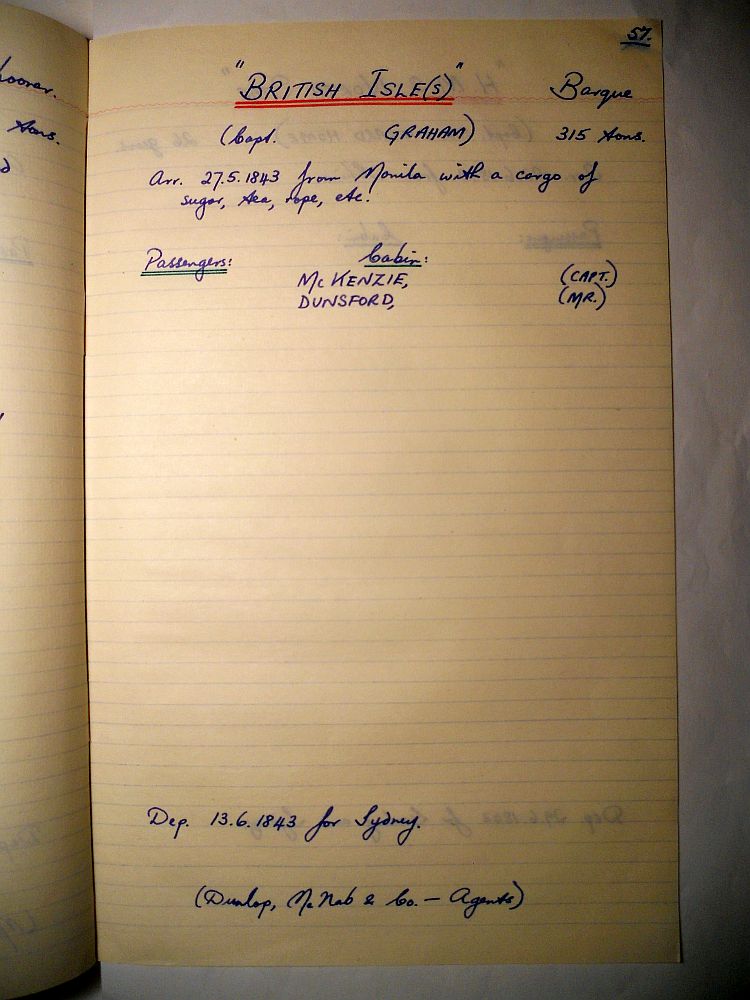 57.
"BRITISH ISLE(S)" Barque
(Capt. GRAHAM) 315 tons.
Arr. 27.5.1843 from Manila with a cargo of
sugar, tea, rope, etc.
Passengers: Cabin:
McKENZIE, (CAPT.)
DUNSFORD, (MR.)
Dep. 13.6.1843 for Sydney.
(Dunlop, McNab & Co. — Agents)
tons.